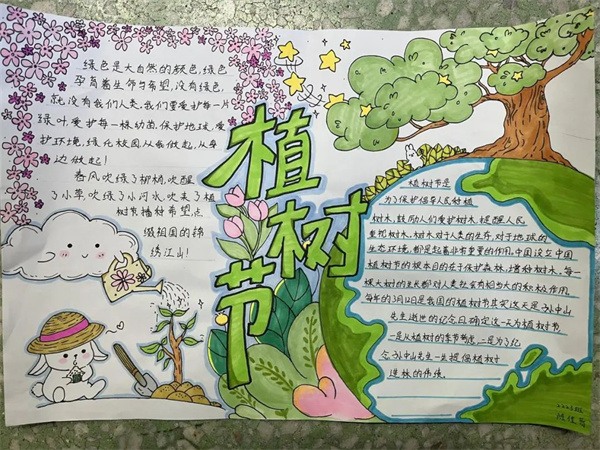 绿色是大自然的颜色,绿色
孕育着生命与希望,没有绿色,
就没有我们人类,我们要爱护每一片
绿叶,爱护每一棵幼苗,保护地球,爱
护环境,绿化校园从我做起,从身
边做起!
春风吹绿了柳树,吹醒
了小草,吹绿了小河水,吹来了植
树节播种希望,点
缀祖国的锦
绣江山!
植树节
植树节是
为了保护倡导人民种植
树木,鼓励人们爱护树木,提醒人民
重视树木,树木对于人类的生存,对于地球的
生态环境,都是起着非常重要的作用,中国设立中国
植树节的根本目的在于保护森林,增种树木,每一
棵大树的生长都对人类社会有相当大的积极作用
每年的3月12日是我国的植树节其实这天是孙中山
先生逝世的纪念日,确定这一天为植树节
一是从植树的季节考虑,二是为了纪
念孙中山先生一生提倡植树
造林的伟绩.